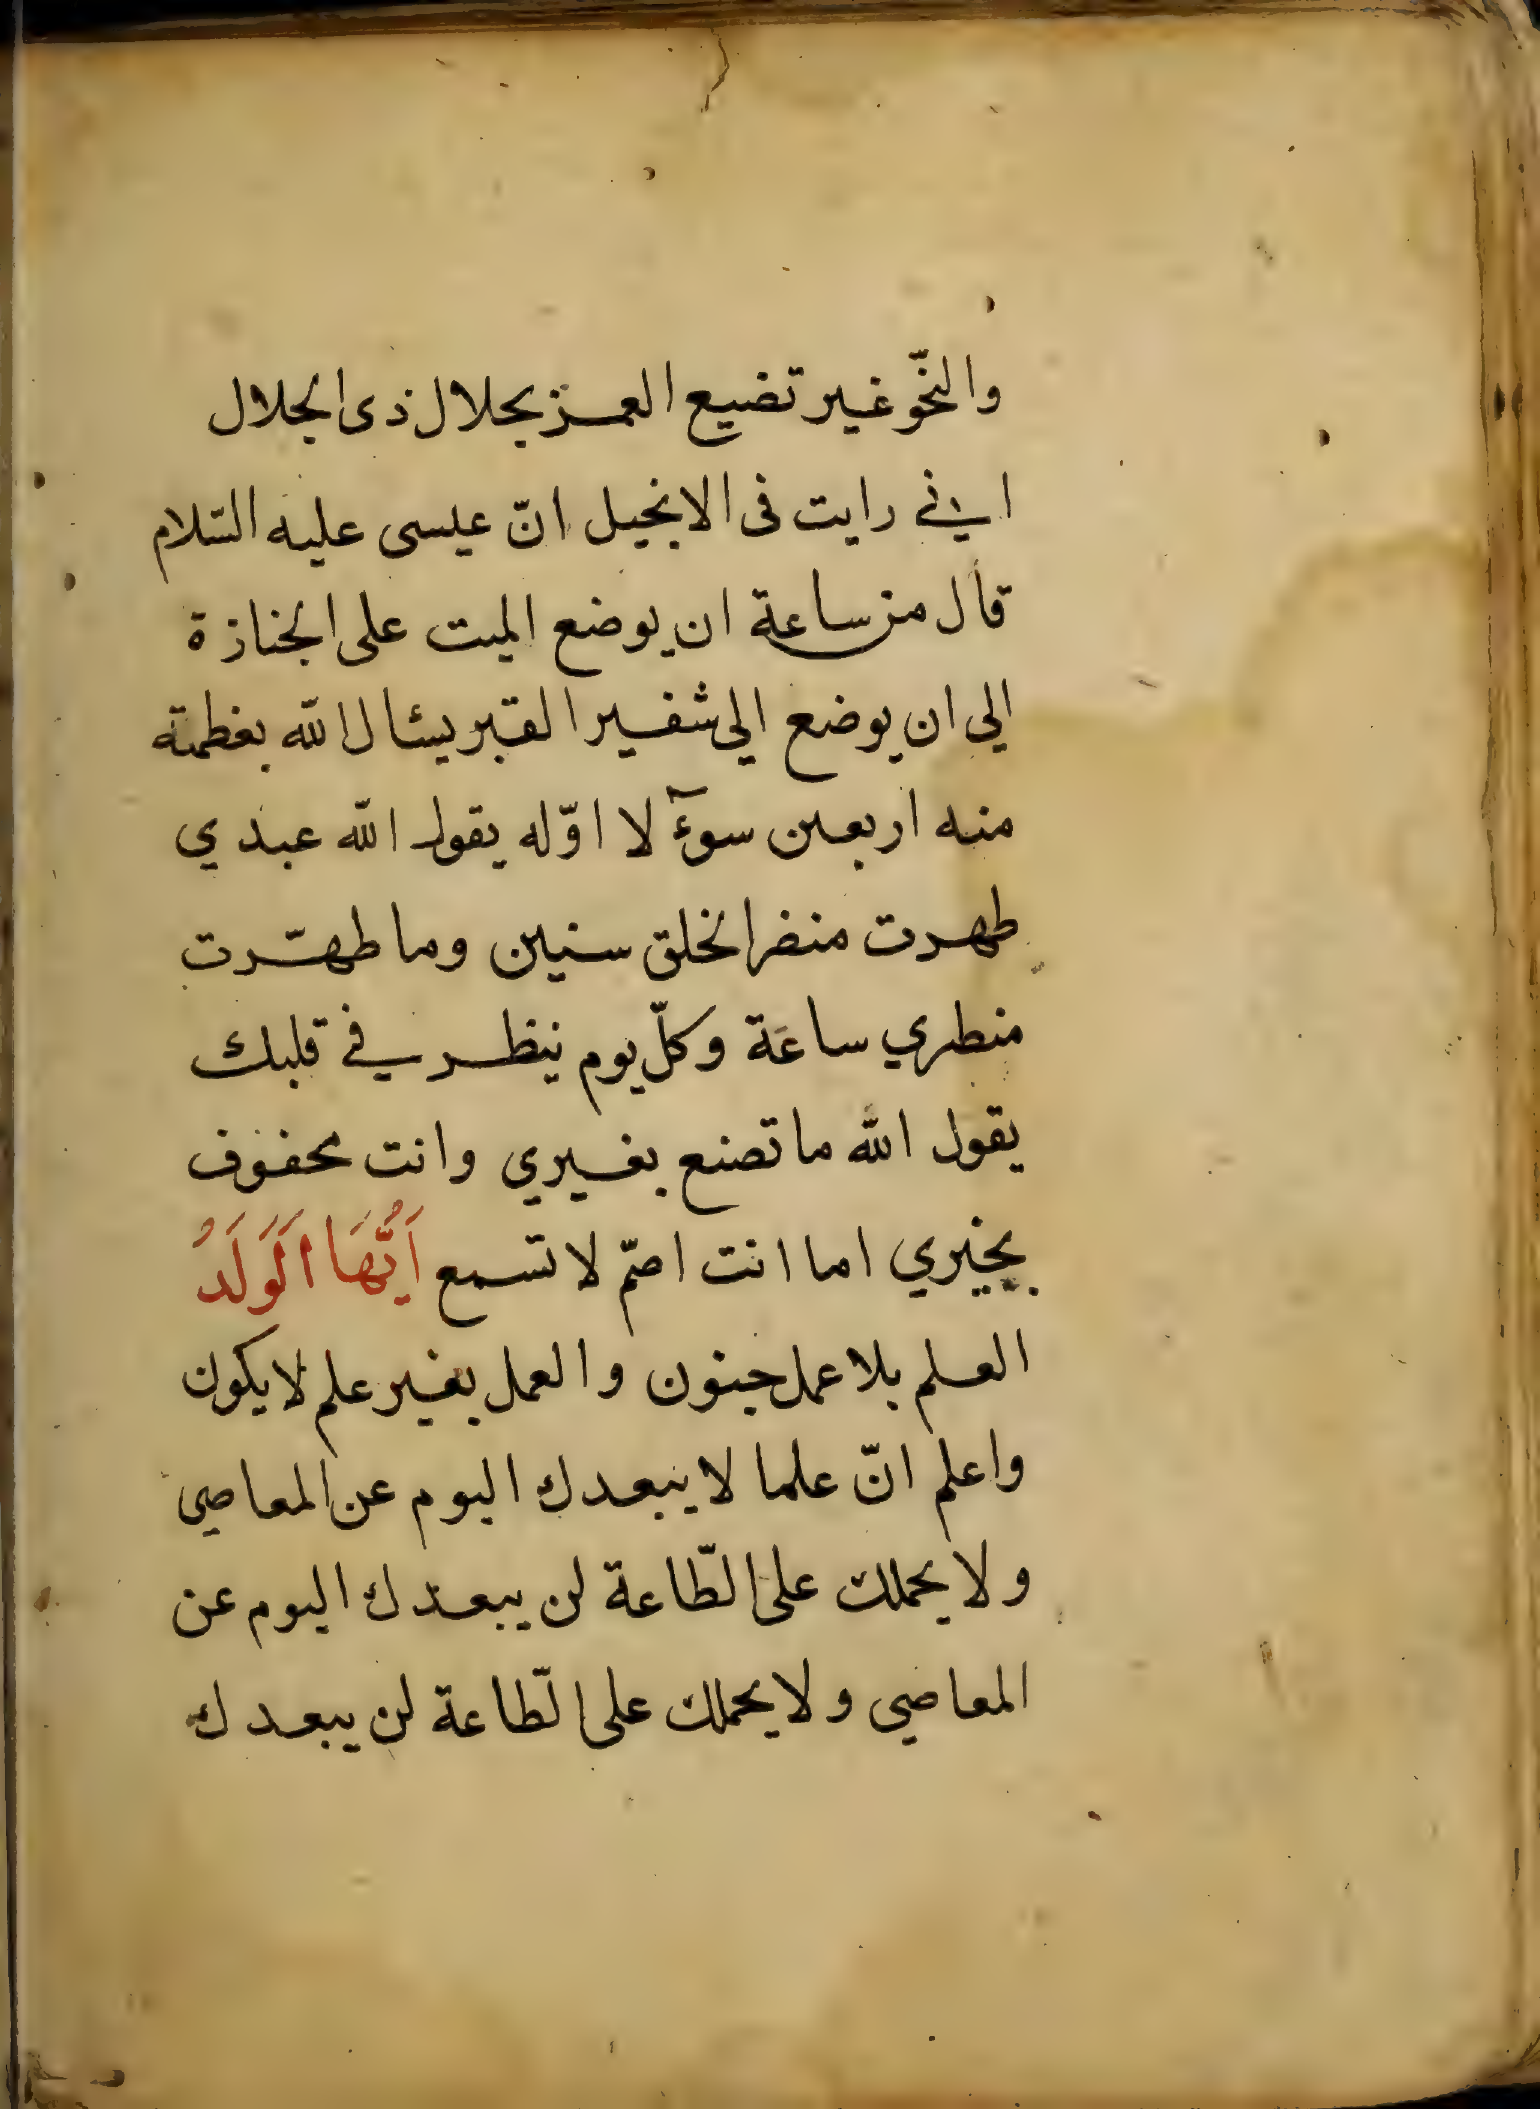 والنّحو غير تضيع العمر بجلال ذى الجلال
انى رايت فى الانجيل انّ عيسى عليه السّلام
قال من ساعة ان يوضع الميت على الجنازة
الى ان يوضع الى شفير القبر يسئال الله بعظمته
منه اربعين سوءٓ لا اوّله يقول الله عبدي
طهرت منضر الخلق سنين وما طهّرت
منطري ساعة وكلّ يوم ينظر في قلبك
يقول الله ما تصنع بغيري وانت محفوف
بخيري اما انت اصمّ لا تسمع اَيُّهَا اَلَوَلَدُ
العلم بلا عمل جنون والعمل بغير علم لا يكون
واعلم انّ علما لا يبعدك اليوم عن المعاصي
ولا يحملك على الطّاعة لن يبعدك اليوم عن
المعاصي ولا يحملك على الطّاعة لن يبعدك